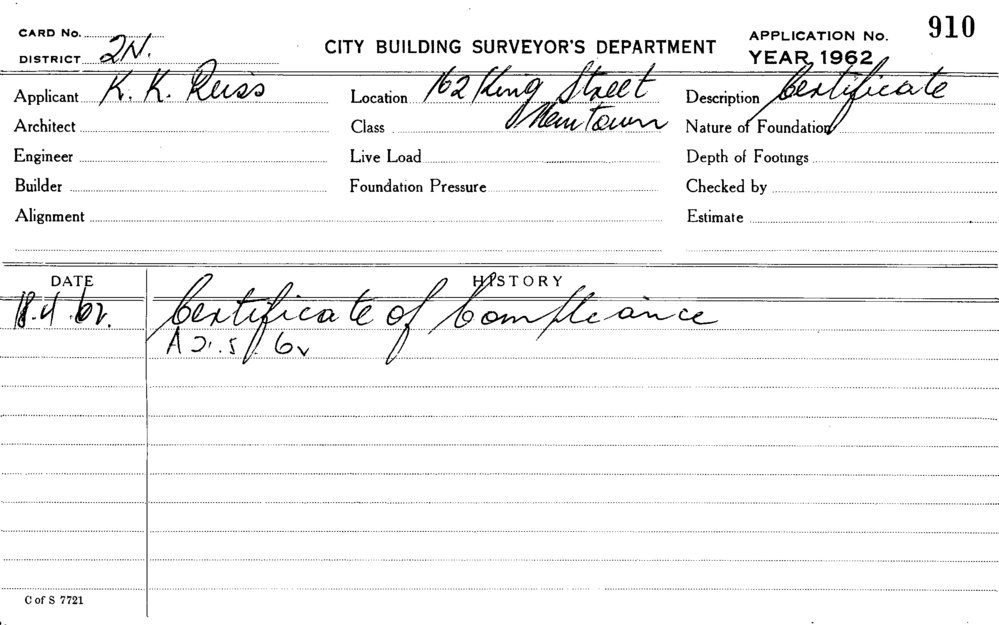 CARD No.
DISTRICT 2N.
CITY BUILDING SURVEYOR'S DEPARTMENT
APPLICATION No. 910
YEAR, 1962
Applicant K. K. Reiss
Location 162 King Street
Newtown
Description Certificate
Architect
Class
Nature of Foundation
Engineer
Live Load
Depth of Footings
Builder
Foundation Pressure
Checked by
Alignment
Estimate
DATE
HISTORY
18.4.62. Certificate of Compliance
C of S 7721